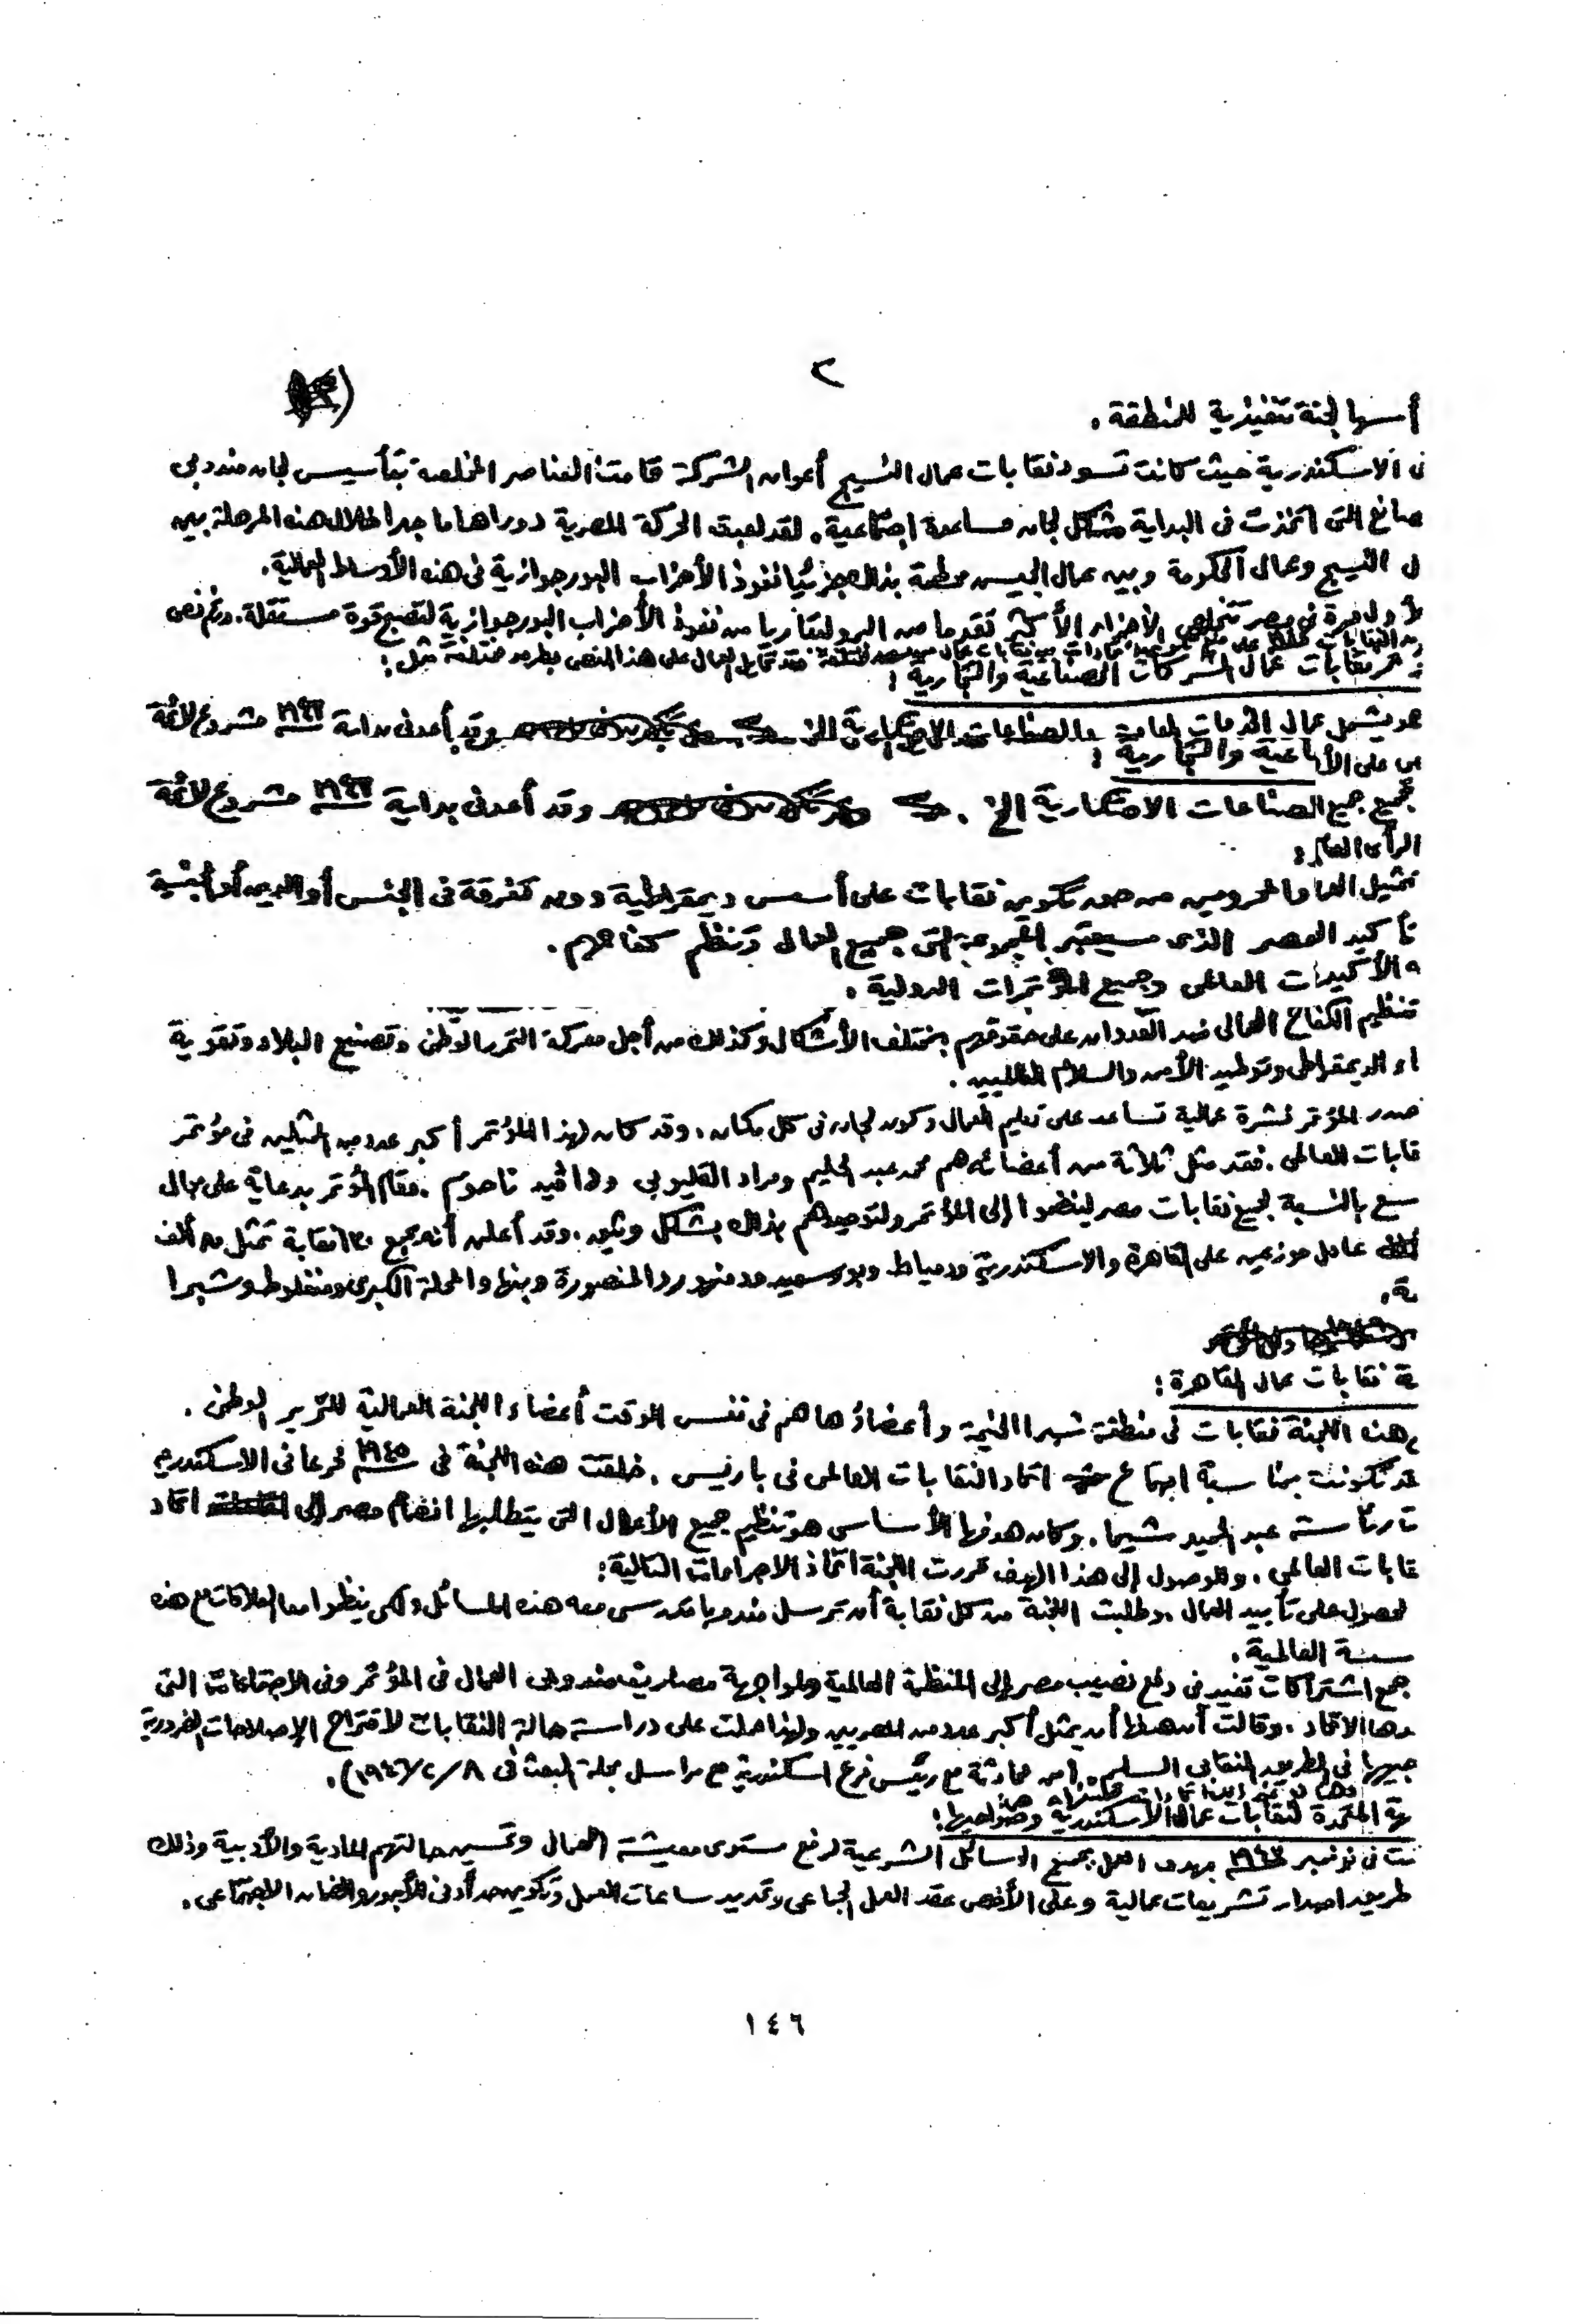 ٢
أسها لجنة تنفيذية للمنطقة .
فى الاسكندرية حيث كانت تسود نقابات عمال النسيج أعوان الشركة قامت العناصر المخلصة بتأسيس لجان مندوبى
صانع التى اتخذت فى البداية شكل لجان مساعدة اجتماعية . لقد لعبت الحركة المصرية دورا هاما جدا خلال هذه المرحلة بين
ل النسيج وعمال الحكومة وبين عمال الجيس محطمة بذلك جزئيا نفوذ الأحزاب البورجوازية فى هذه الأوساط العمالية .
لأول مرة فى مصر تتخلص الأجزاء الأكثر تقدما من البروليتاريا من نفوذ الأحزاب البورجوازية لتصبح قوة مستقلة . ورغم نص
فقد تحايل العمال على هذا النص بطرق مختلفة مثل :
تمر نقابات عمال الشركات الصناعية والتجارية :
هو يشمل عمال الخدمات العامة والصناعات الاحتكارية الخ وقد أعد فى بداية ١٩٤٦ مشروع لائحة
ص على الأ
ناعية والتجارية :
تجميع جميع الصناعات الاحتكارية الخ . وقد أعد فى بداية ١٩٤٦ مشروع لائحة
الرأى العام :
تمثيل العما والمحرومين من حق تكوين نقابات على أسس ديمقراطية ودون تفرقة فى الجنس أو الدين أو الجنسية
تأكيد العصر الذى سيعتبر المجموعة التى جميع العمال وتنظم كفاحهم .
ه الأكيدات العالمى وجميع المؤتمرات الدولية .
تنظيم الكفاح العمالى ضد العدوان على حقوقهم بمختلف الأشكال وكذلك من أجل معركة التحرر الوطنى وتصنيع البلاد وتقوية
اء الديمقراطى وتوطيد الأمن والسلام العالميين .
صدر المؤتمر نشرة عمالية تساعد على تعليم العمال وكون لجان فى كل مكان . وقد كان لهذا المؤتمر أكبر عدد من الممثلين فى مؤتمر
قابات العالمى . فقد مثل ثلاثة من أعضائه هم محمد عبد الحليم ومراد القليوبى ودافيد ناحوم . فقام المؤتمر بدعاية على مجال
سع بالنسبة لجميع نقابات مصر لينضموا إلى المؤتمر ولتوحيدهم بذلك بشكل وثيق . وقد أعلن أنه يجمع ١٢٠ نقابة تمثل ٨٠ ألف
عامل موزعين على القاهرة والاسكندرية ودمياط وبورسعيد ودمنهور والمنصورة وبنها والمحلة الكبرى ومنفلوط وشبرا
ية .
ية نقابات عمال القاهرة :
م هذه اللجنة نقابات فى منطقة شبرا الخيمة وأعضاؤها هم فى نفس الوقت أعضاء اللجنة العمالية للتحرير الوطنى .
قد تكونت بمناسبة اجتماع اتحاد النقابات العالمى فى باريس . خلقت هذه اللجنة فى ١٩٤٥ فرعا فى الاسكندرية
ت رئاسة عبد الحميد شيحا . وكان هدفها الأساسى هو تنظيم جميع الأعمال التى يتطلبها انضمام مصر إلى اتحاد
قابات العالمى . وللوصول إلى هذا الهدف قررت اللجنة اتخاذ الاجراءات التالية :
لحصول على تأييد العمال . وطلبت اللجنة من كل نقابة أن ترسل مندوبا لتدرس معه هذه المسائل ولكى ينظموا معا العلاقات مع هذه
سسة العالمية .
جمع اشتراكات تفيد فى دفع نصيب مصر إلى المنظمة العالمية ولمواجهة مصاريف مندوبى العمال فى المؤتمر وفى الاجتماعات التى
دها الاتحاد . وقالت أن هدفها أن يمثل أكبر عدد من المصريين ولهذا عملت على دراسة حالة النقابات لاقتراح الإصلاحات الضرورية
جيهها فى الطريق النقابى السليم . (من محادثة مع رئيس فرع اسكندرية مع مراسل مجلة البعث فى ٨/٢/١٩٤٦) .
هة المتحدة لنقابات عمال الأسكندرية وضواحيها :
نت فى نوفمبر ١٩٤٣ بهدف العمل بجميع الوسائل الشرعية لرفع مستوى معيشة العمال وتحسين حالتهم المادية والأدبية وذلك
طريق اصدار تشريعات عمالية وعلى الأخص عقد العمل الجماعى وتحديد ساعات العمل وتكوين حد أدنى للأجور والضمان الاجتماعى .
١٤٦